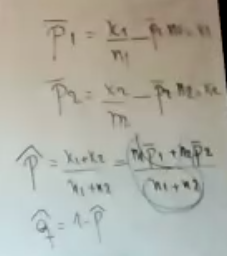 p̅1 = x1/n1 – p̅1 n1 = x1
p̅2 = x2/n – p̅2 n2 = x2
p̂ = x1+x2/n1+n2 = n1p̅1 + n2p̅2/n1+n2
q̂ = 1-p̂